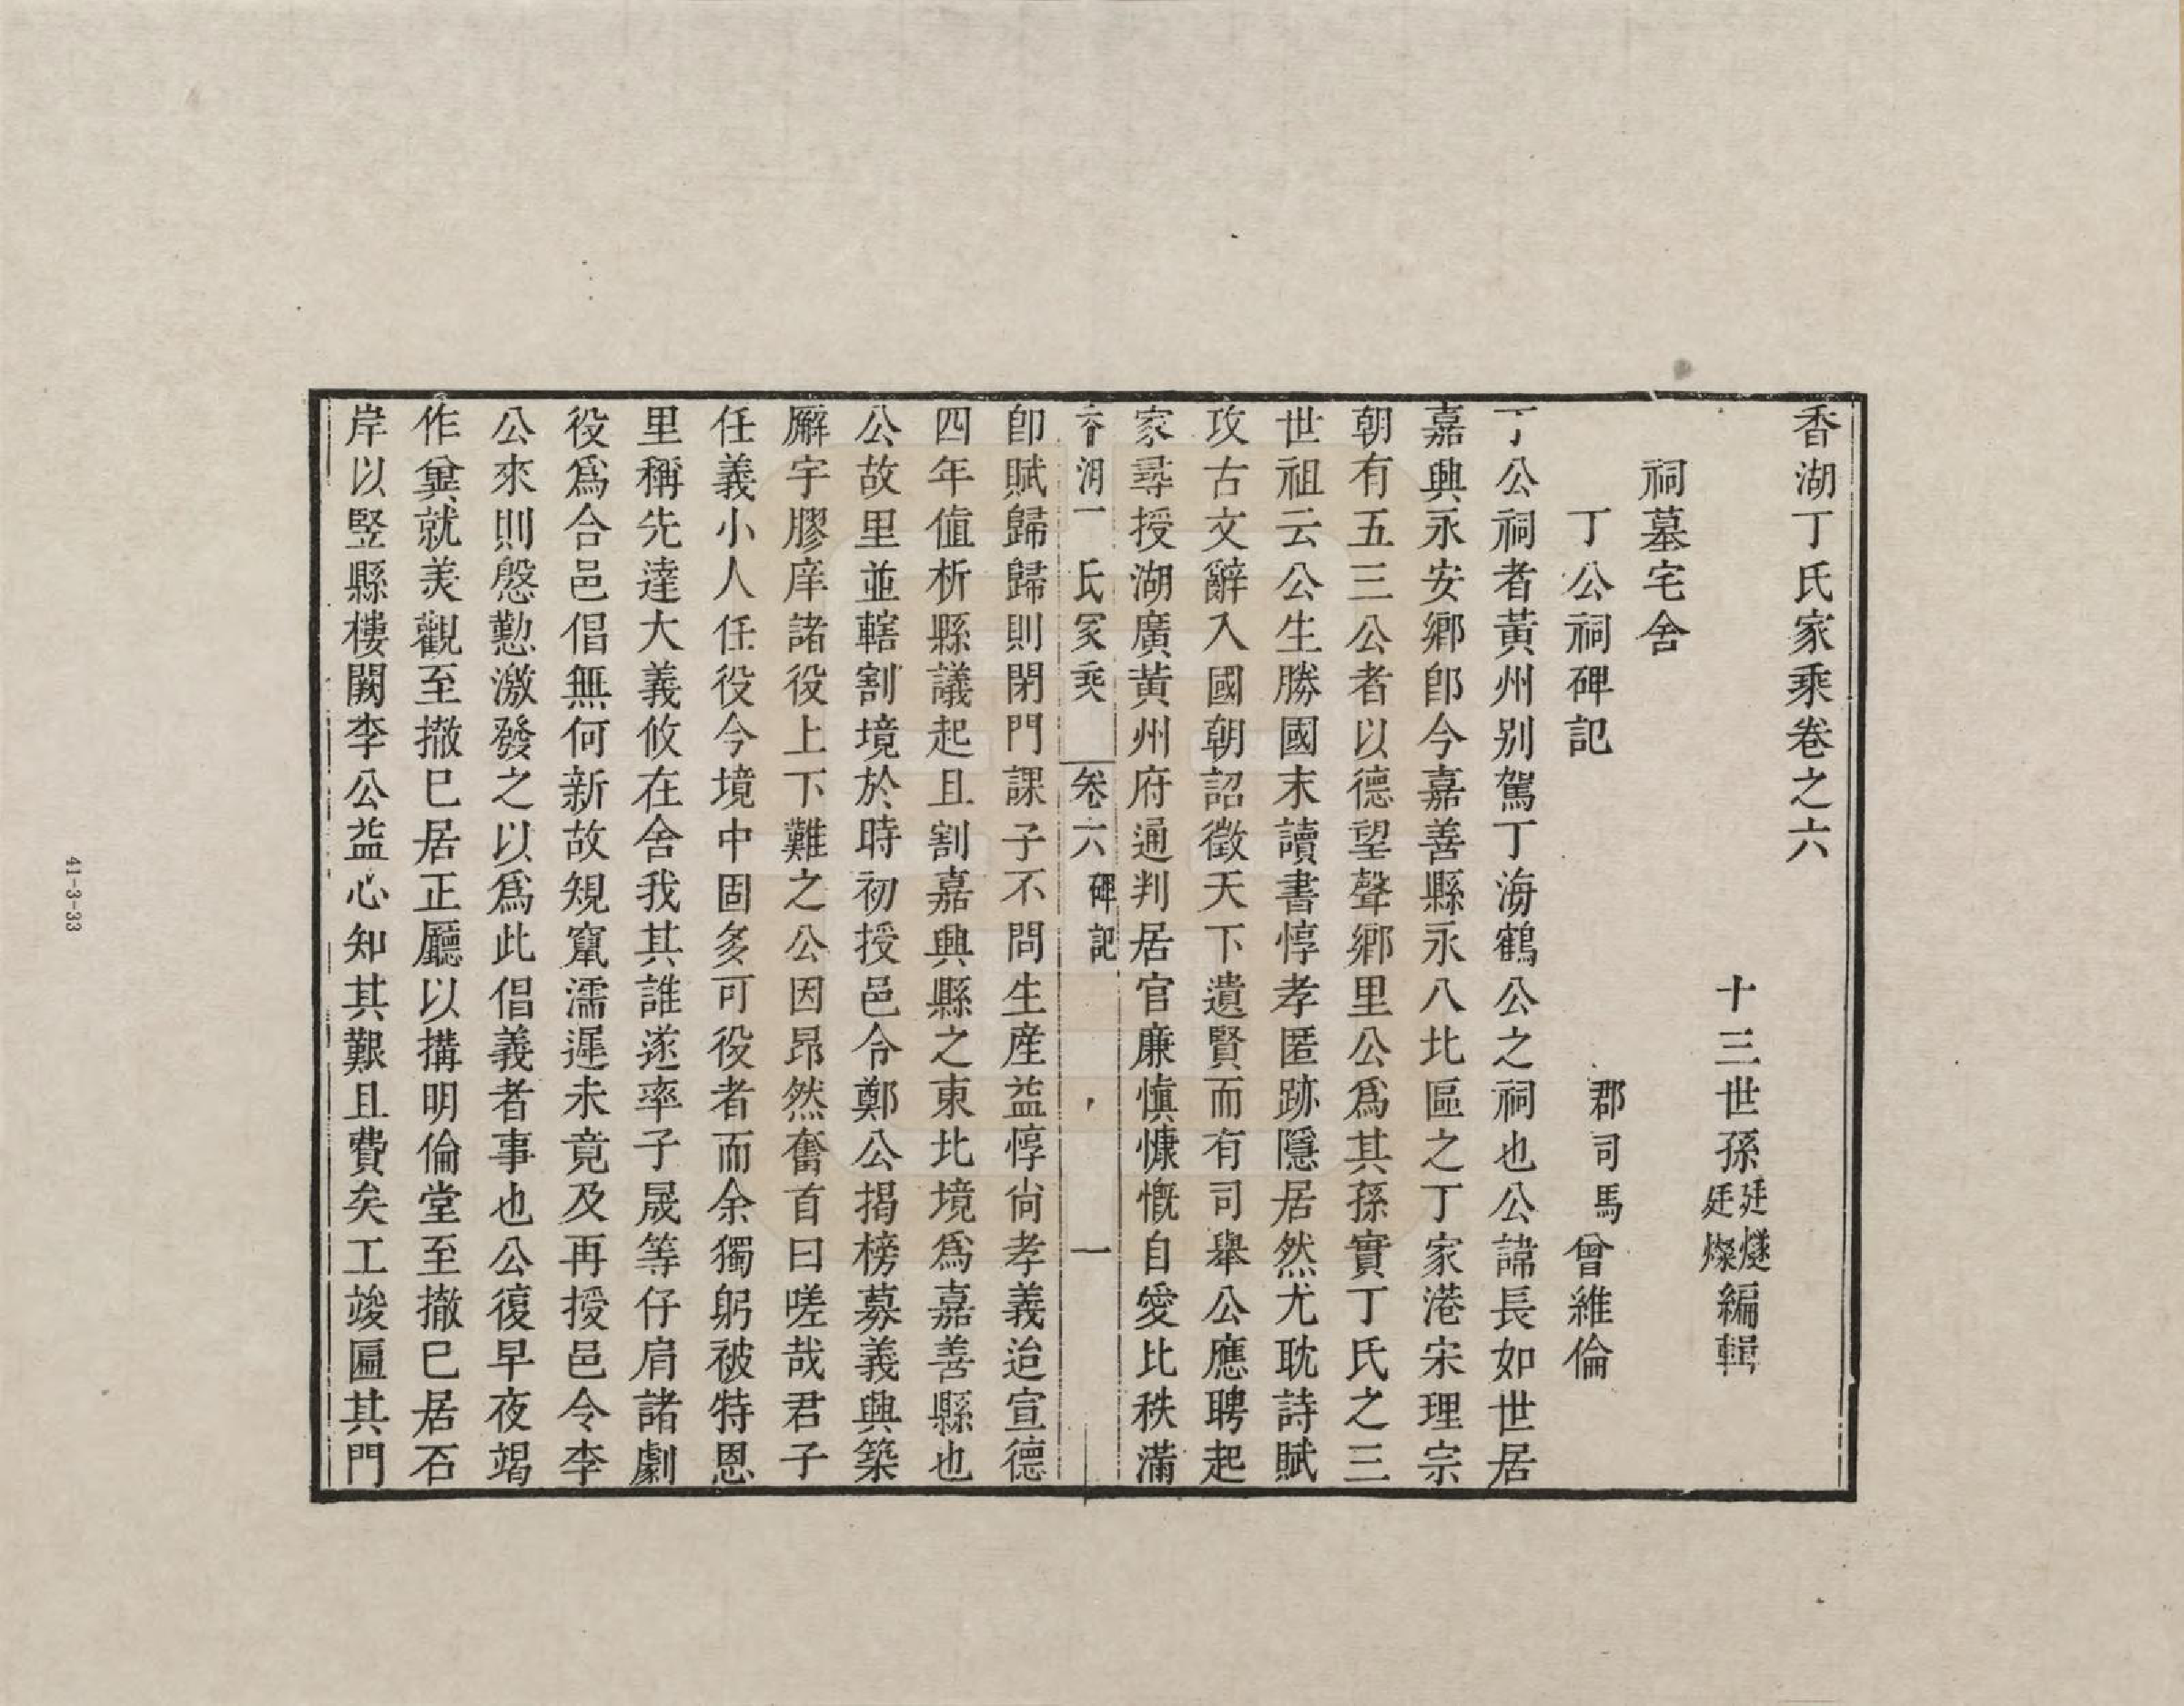 香湖丁氏家乘卷之六
十三世孫廷燧廷燦編輯
祠墓宅舍
丁公祠碑記
郡司馬曾維倫
丁公祠者黃州别駕丁海鶴公之祠也公諱長如世居
嘉興永安鄉卽今嘉善縣永八北區之丁家港宋理宗
朝有五三公者以德望聲鄉里公爲其孫實丁氏之三
世祖云公生勝國末讀書惇孝匿跡隱居然尤耽詩賦
攻古文辭入國朝詔徵天下遺賢而有司舉公應聘起
家尋授湖廣黃州府通判居官廉慎慷慨自愛比秩滿
香湖丁氏家乘 卷六 碑記 一
卽賦歸歸則閉門課子不問生産益惇尙孝義迨宣德
四年值析縣議起且割嘉興縣之東北境爲嘉善縣也
公故里並轄割境於時初授邑令鄭公揭榜募義興築
廨宇膠庠諸役上下難之公因昻然奮首曰嗟哉君子
任義小人任役今境中固多可役者而余獨躬被特恩
里稱先達大義攸在舍我其誰遂率子晟等仔肩諸劇
役爲合邑倡無何新故規窵濡遲未竟及再授邑令李
公來則慇懃激發之以爲此倡義者事也公復早夜竭
作兾就羙觀至撤巳居正廳以搆明倫堂至撤巳居石
岸以竪縣樓闕李公益心知其艱且費矣工竣匾其門
41-3-33